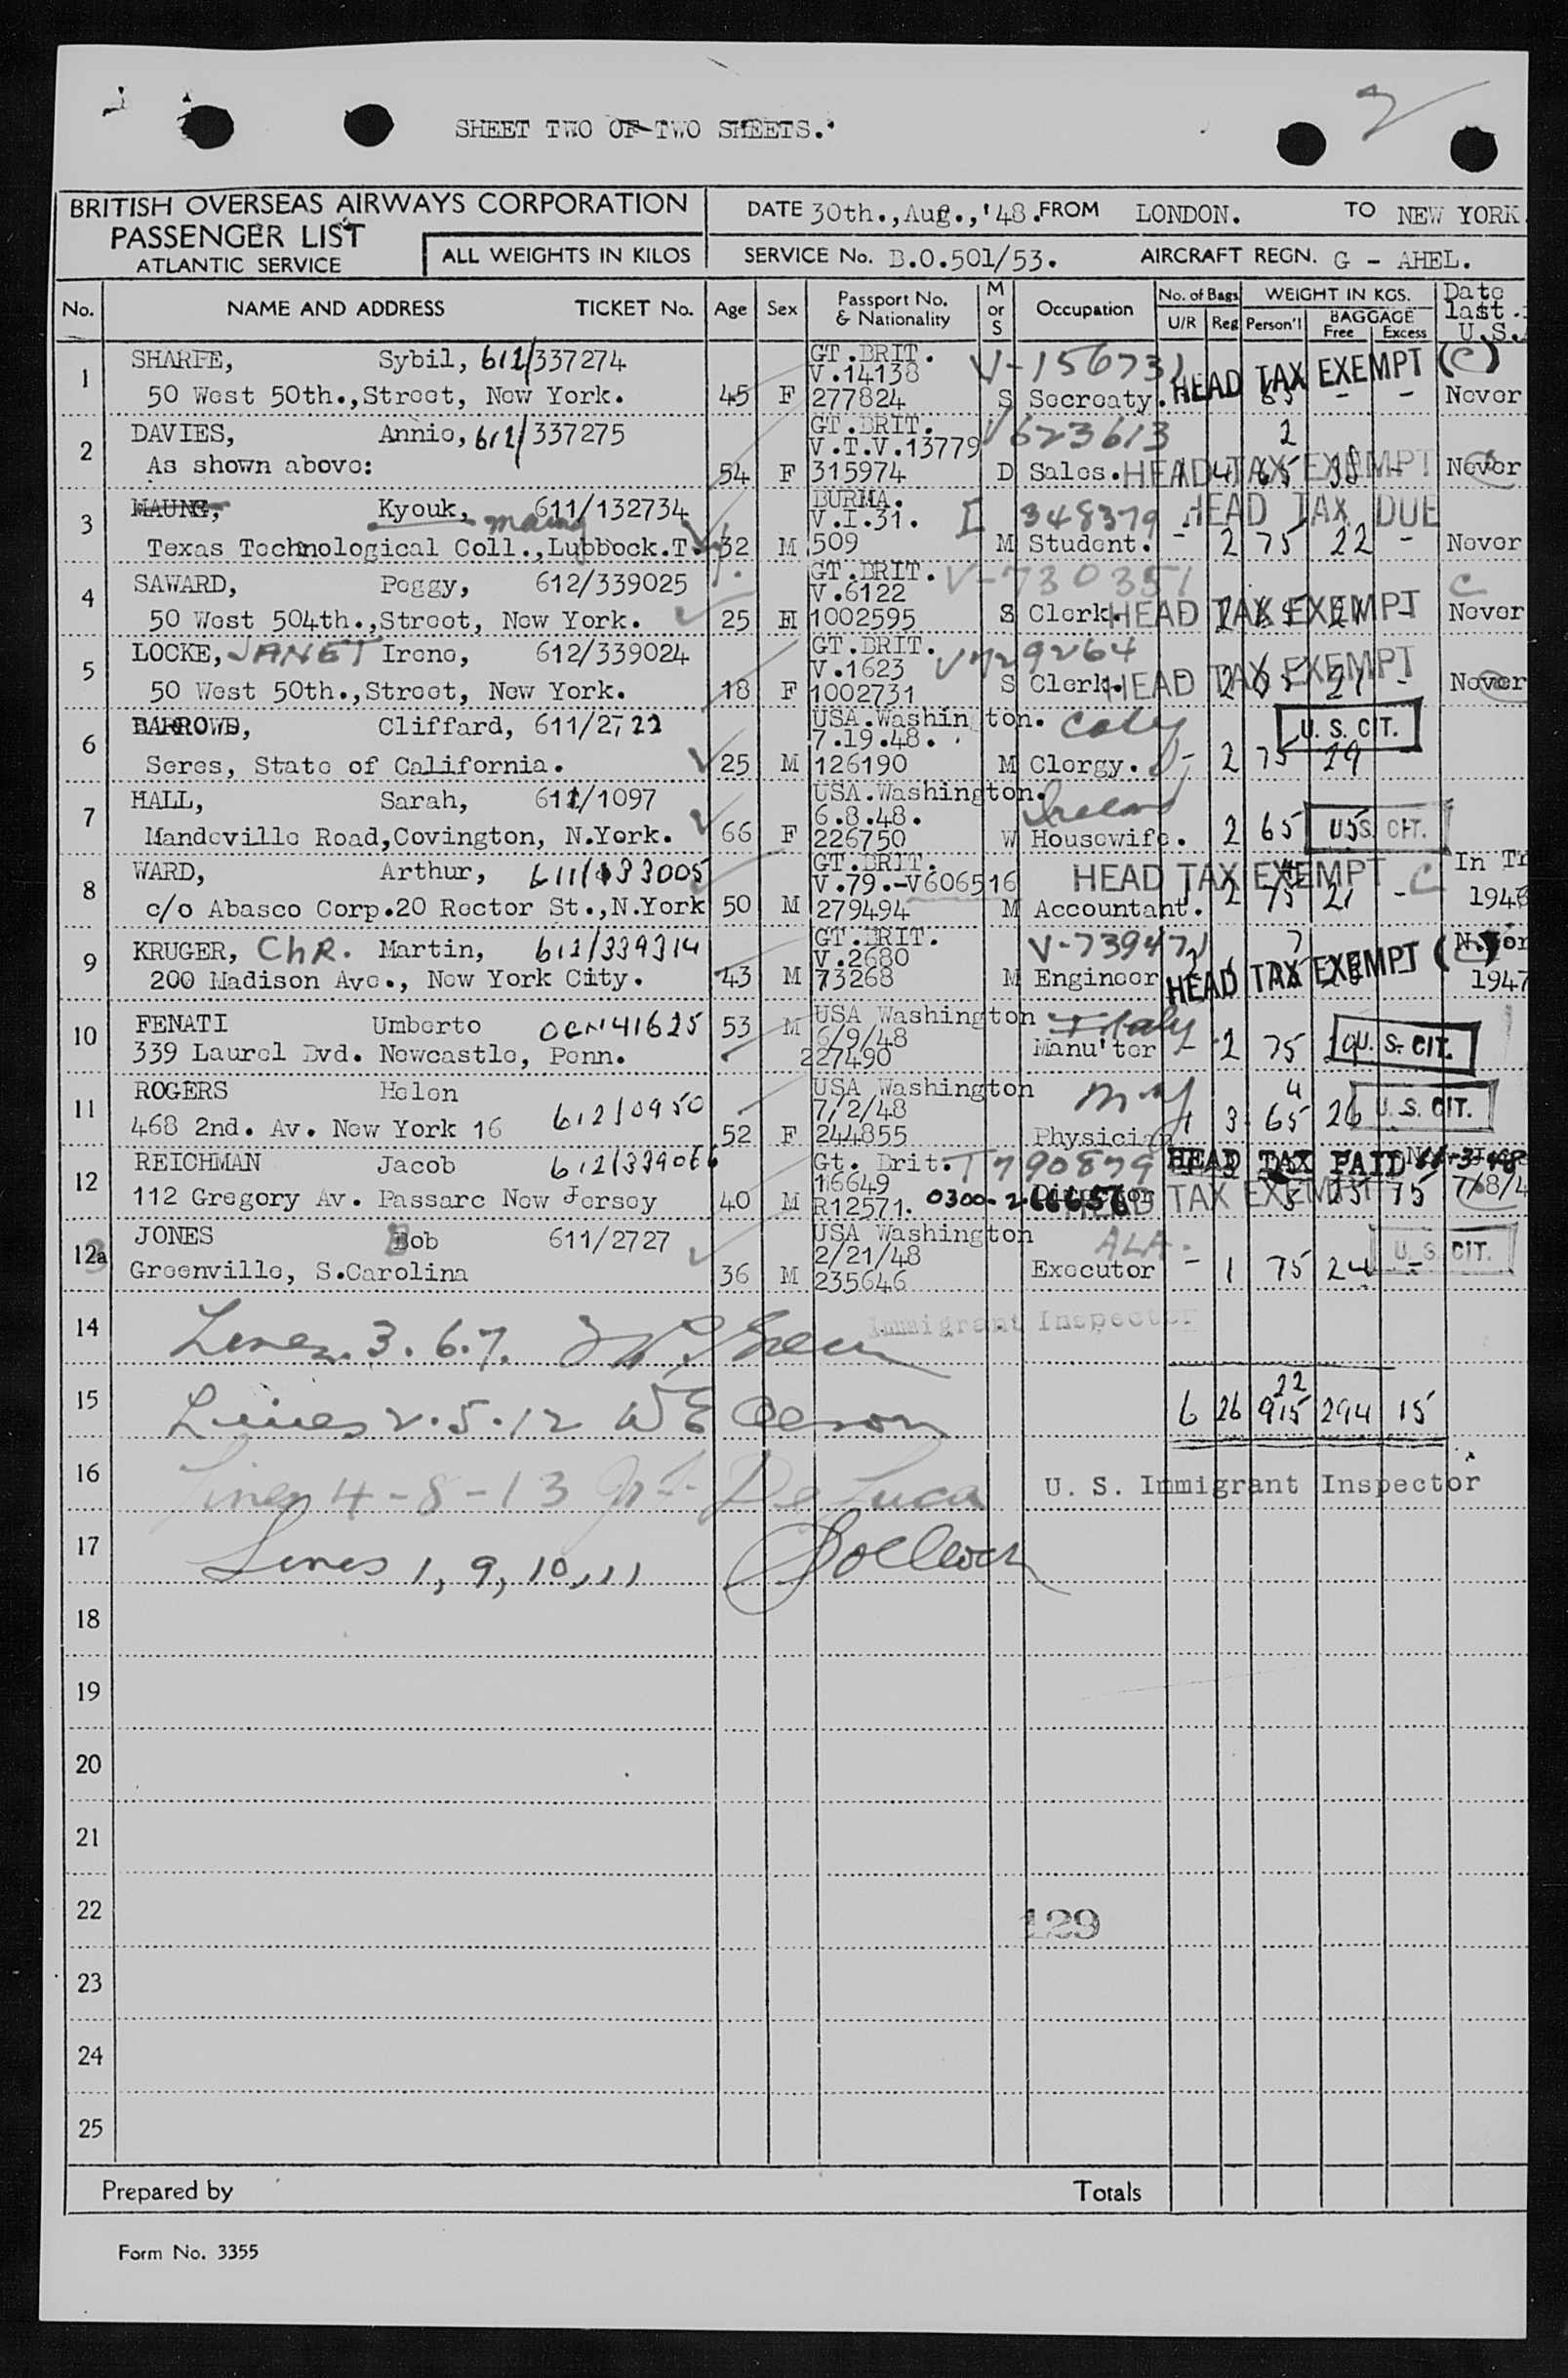 2
SHEET TWO OF TWO SHEETS.
BRITISH OVERSEAS AIRWAYS CORPORATION
PASSENGER LIST
ATLANTIC SERVICE
ALL WEIGHTS IN KILOS
DATE 30th.,Aug.,'48. FROM LONDON. TO NEW YORK.
SERVICE No. B.O.501/53. AIRCRAFT REGN. G - AHEL.
No. NAME AND ADDRESS TICKET No. Age Sex Passport No. & Nationality M or S Occupation No. of Bags U/R Reg WEIGHT IN KGS. Person'l BAGGAGE Free Excess Date last U.S.
1 SHARPE, Sybil, 612/337274 GT.BRIT. V-156731
V.14138 HEAD TAX EXEMPT (C)
50 West 50th.,Street, New York. 45 F 277824 S Secreaty. 65 - - Never
2 DAVIES, Annie, 612/337275 GT.BRIT. V623613
V.T.V.13779 2
As shown above: 54 F 315974 D Sales. HEAD TAX EXEMPT 1 4 65 38 - Never
3 MAUNG, Kyouk, maung 611/132734 BURMA. HEAD TAX DUE
V.I.31. I 348379
Texas Technological Coll.,Lubbock.T. 32 M 509 M Student. - 2 75 22 - Never
4 SAWARD, Peggy, 612/339025 GT.BRIT. V-730351 C
V.6122
50 West 504th.,Street, New York. 25 1002595 S Clerk. HEAD TAX EXEMPT 2 65 21 - Never
5 LOCKE, JANET Irene, 612/339024 GT.BRIT.
V.1623 V729264
50 West 50th.,Street, New York. 18 F 1002731 S Clerk. HEAD TAX EXEMPT - 2 65 21 - Never
6 BARROWS, Cliffard, 611/2722 USA.Washington.
7.19.48. U. S. CIT.
Seres, State of California. 25 M 126190 M Clergy. - 2 75 29
7 HALL, Sarah, 611/1097 USA.Washington.
6.8.48. Ireland
Mandeville Road,Covington, N.York. 66 F 226750 W Housewife. 2 65 U.S. CIT.
8 WARD, Arthur, 611/133005 GT.BRIT. In Tr
V.79.-V606516 HEAD TAX EXEMPT C
c/o Abasco Corp.20 Rector St.,N.York 50 M 279494 M Accountant. 2 75 21 - 1948
9 KRUGER, ChR. Martin, 612/339314 GT.BRIT. V-739471
V.2680 7
200 Madison Ave., New York City. 43 M 73268 M Engineer HEAD TAX EXEMPT (C) 1947
10 FENATI Umberto OCN41625 53 M USA Washington Italy
6/9/48
339 Laurel Bvd. Newcastle, Penn. 227490 Manu'ter - 2 75 U. S. CIT.
11 ROGERS Helen USA Washington
612/0950 7/2/48 4 U. S. CIT.
468 2nd. Av. New York 16 52 F 244855 Physician 1 3 65 26
12 REICHMAN Jacob 612/339066 Gt. Brit. T790879 HEAD TAX PAID
16649
112 Gregory Av. Passarc New Jersey 40 M R12571. 0300-266656 HEAD TAX EXEMPT 15 7/8/4
12a JONES Bob 611/2727 USA Washington ALA.
2/21/48 U. S. CIT.
Greenville, S.Carolina 36 M 235646 Executor - 1 75 24 -
14 Lines. 3. 6. 7. Green Immigrant Inspector
22
15 Lines 2. 5. 12 6 26 915 294 15
16 Lines 4-8-13 De Luca U. S. Immigrant Inspector
17 Lines 1, 9, 10, 11
18
19
20
21
22
129
23
24
25
Prepared by Totals
Form No. 3355